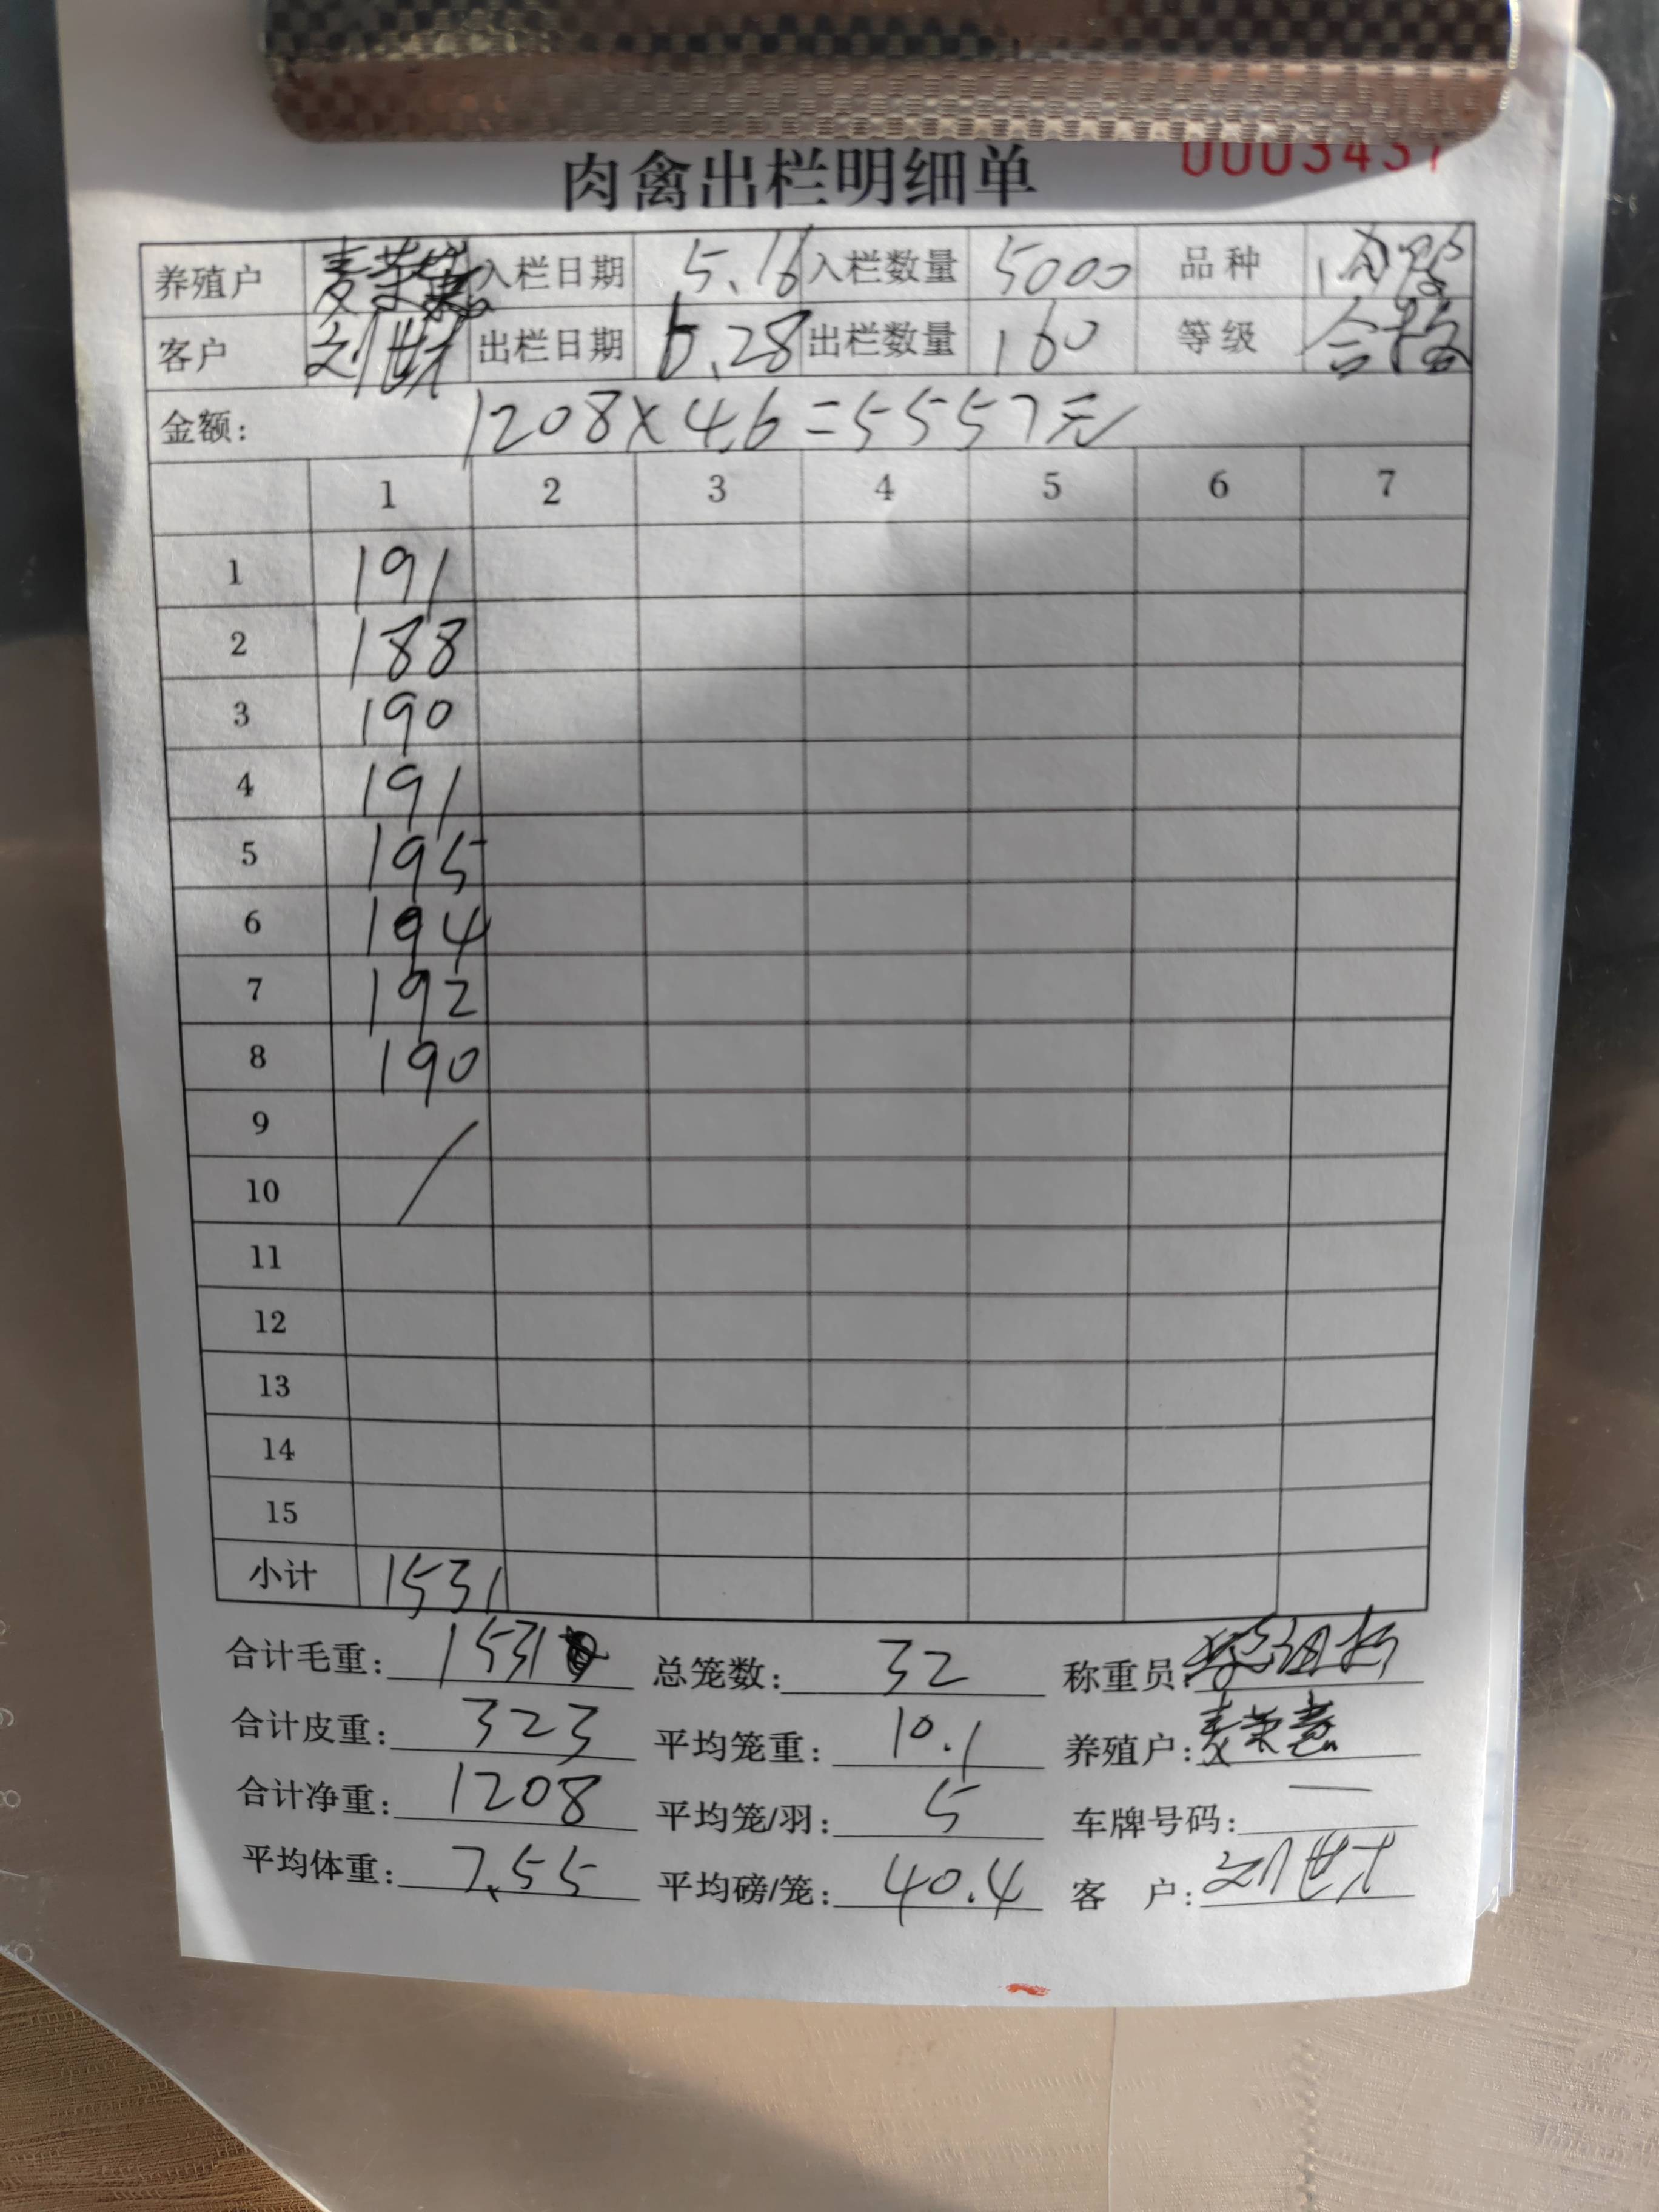 肉禽出栏明细单 0003437
养殖户 麦荣慧 入栏日期 5.16 入栏数量 5000 品种
客户 刘世才 出栏日期 6.28 出栏数量 160 等级 合格
金额: 1208×4.6=5557元
1 2 3 4 5 6 7
1 191
2 188
3 190
4 191
5 195
6 194
7 192
8 190
9
10
11
12
13
14
15
小计 1531
合计毛重: 1531 总笼数: 32 称重员:
合计皮重: 323 平均笼重: 10.1 养殖户: 麦荣慧
合计净重: 1208 平均笼/羽: 5 车牌号码: —
平均体重: 7.55 平均磅/笼: 40.4 客 户: 刘世才